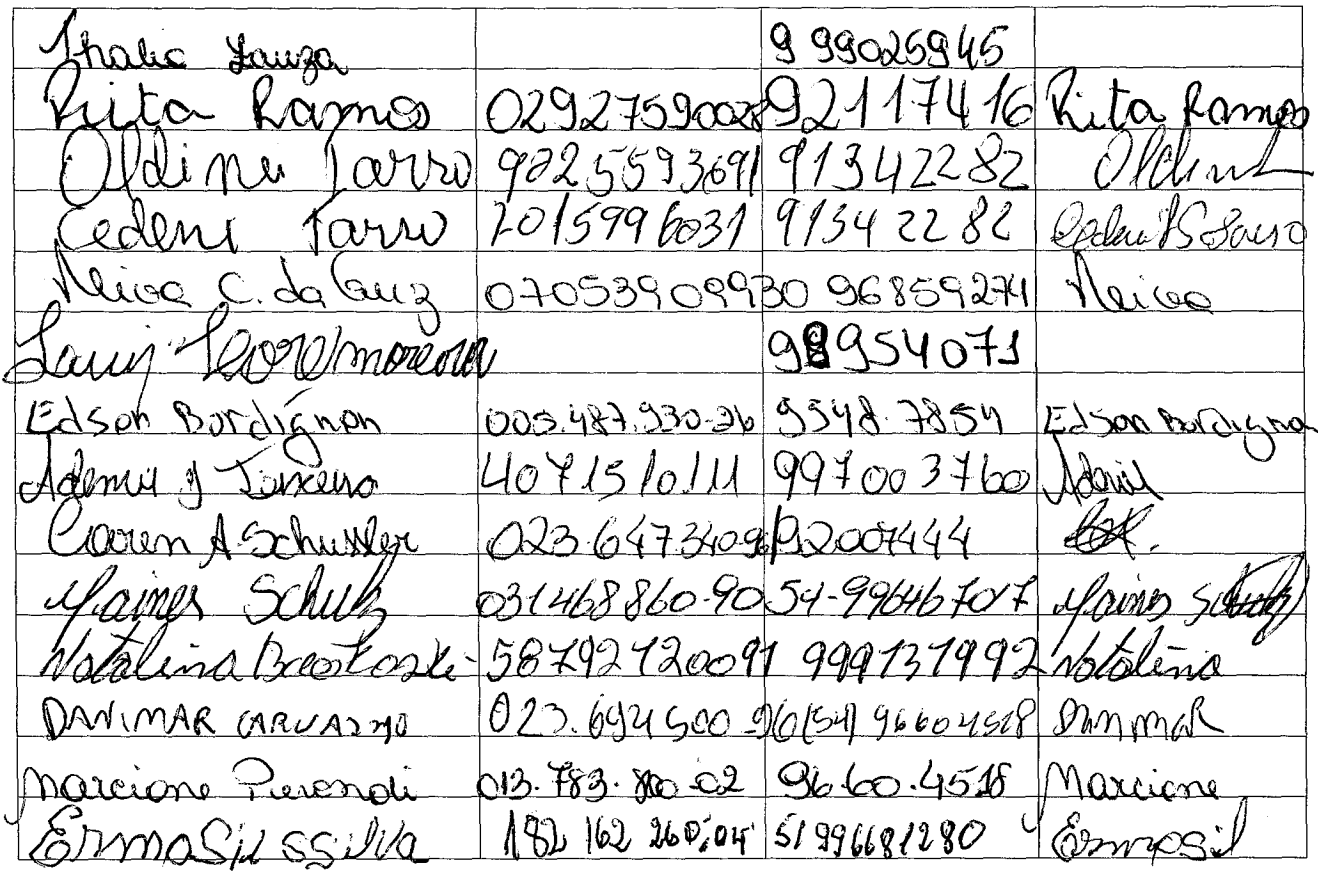 Thalia Souza 9 99025945
Rita Ramos 02927590028 92117416 Rita Ramos
Oldina Farro 9825593691 91342282
Cedeni Farro 2015996031 91342282
Neiva C. da Cruz 07053909930 96859274 Neiva
989954071
Edson Bordignon 005.487.930-26 9548.7854 Edson Bordignon
Ademir J Teixeira 40715101111 997003760 Ademir
Caren A Schussler 023.64734096 92007444
Maines Schulz 031468860-90 54-996467017 Maines Schulz
Natalina 58792720091 999737992 Natalina
DANIMAR CARVALHO 023.694500-96 (54) 96604518 DANIMAR
Marcione Pierondi 013.783. -02 96.60.4518 Marcione
Ermosil ssilva 182 162 260.04 51 996681280 Ermosil